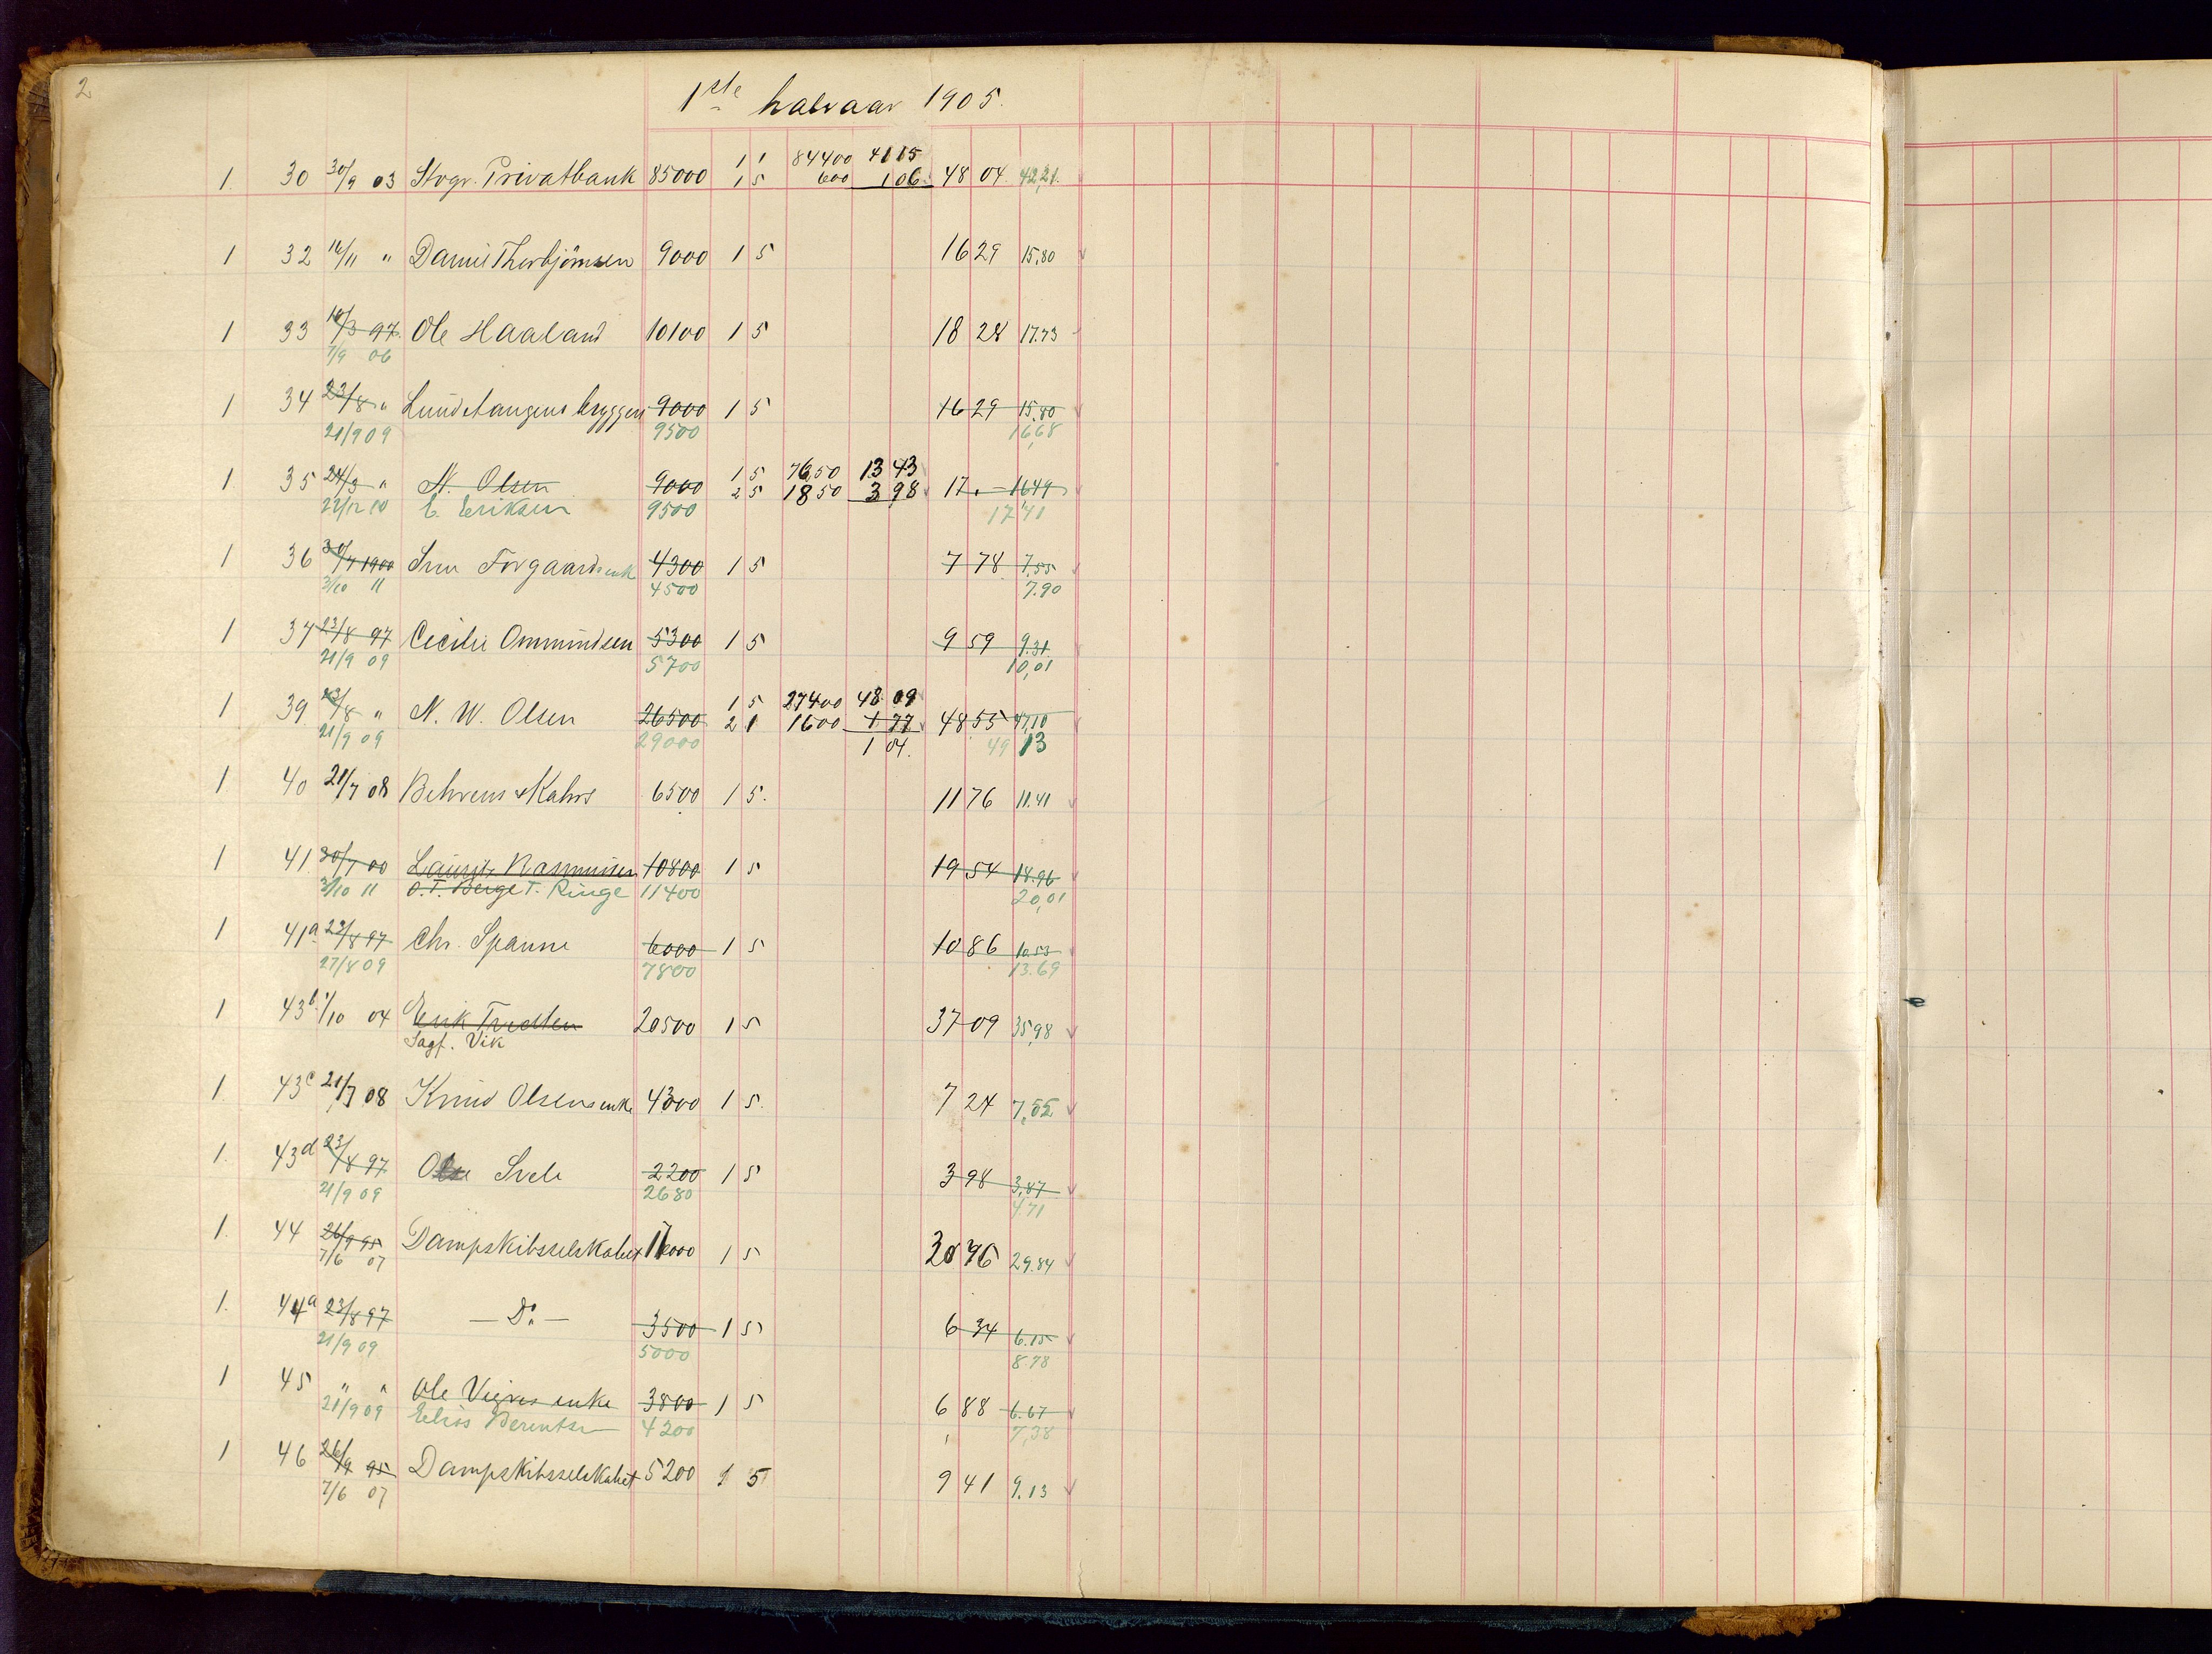 2
1ste halvaar 1905.
1. 30 30/9 03 Stvgr. Privatbank 85000 1 1 84400 41 15
1 5 600 1 06. 48 04. 42,21.
1 32 " Daniel Thorbjörnsen 9000 1 5 16 29 15,80
1 33 97. Ole Haaland 10100 1 5 18 28 17.73
7/9 06
1 34 23/8 " Lundetangens bryggeri 9000 1 5 16 29 15,80
21/9 09 9500 16,68
1 35 24/3 " N. Olsen 9000 1 5 76,50 13 43
2 5 18 50 3 98 17. - 16.49
22/12 10 E. Eriksen 9500 17 41
1 36 1900 Torgaards enke 4300 1 5 7 78 7,55
3/10 11 4500 7.90
1 37 23/8 97 Cecilie Ommundsen 5300 1 5 9 59 9.31
21/9 09 5700 10,01
1 39 23/8 " N. W. Olsen 26500 1 5 27400 48 09
2 1 1600 1 77 48 55 47,10
21/9 09 29000 1 04. 49 13
1 40 21/7 08 Behrens & Kahrs 6500 1 5. 11 76 11.41
1 41 30/7 00 Lauritz Rasmussen 10800 1 5 19 54 18.96
3/10 11 O.T. Berge T. Ringe 11400 20,01
1 41a 23/8 97 Chr. Spanne 6000 1 5 10 86 10.53
27/8 09 7800 13.69
1 43b 1/10 04 Erik Tvedten 20500 1 5 37 09 35,98
Sagf. Vik
1. 43c 21/7 08 Knud Olsens enke 4300 1 5. 7 24 7,55
1. 43d 23/8 97 Svele 2200 1 5 3 98 3,87
21/9 09 2680 4.71
1. 44 26/9 95 Dampskibsselskabet 17000 1 5 30 76 29.84
7/6 07
1. 44a 23/8 97 — Do. — 3500 1 5 6 34 6.15
21/9 09 5000 8.78
1 45 " " Ole Vigres enke 3800 1 5 6 88 6.67
21/9 09 Elias Berentsen 4200 7,38
1 46 26/9 95 Dampskibsselskabet 5200 1 5 9 41 9.13
7/6 07